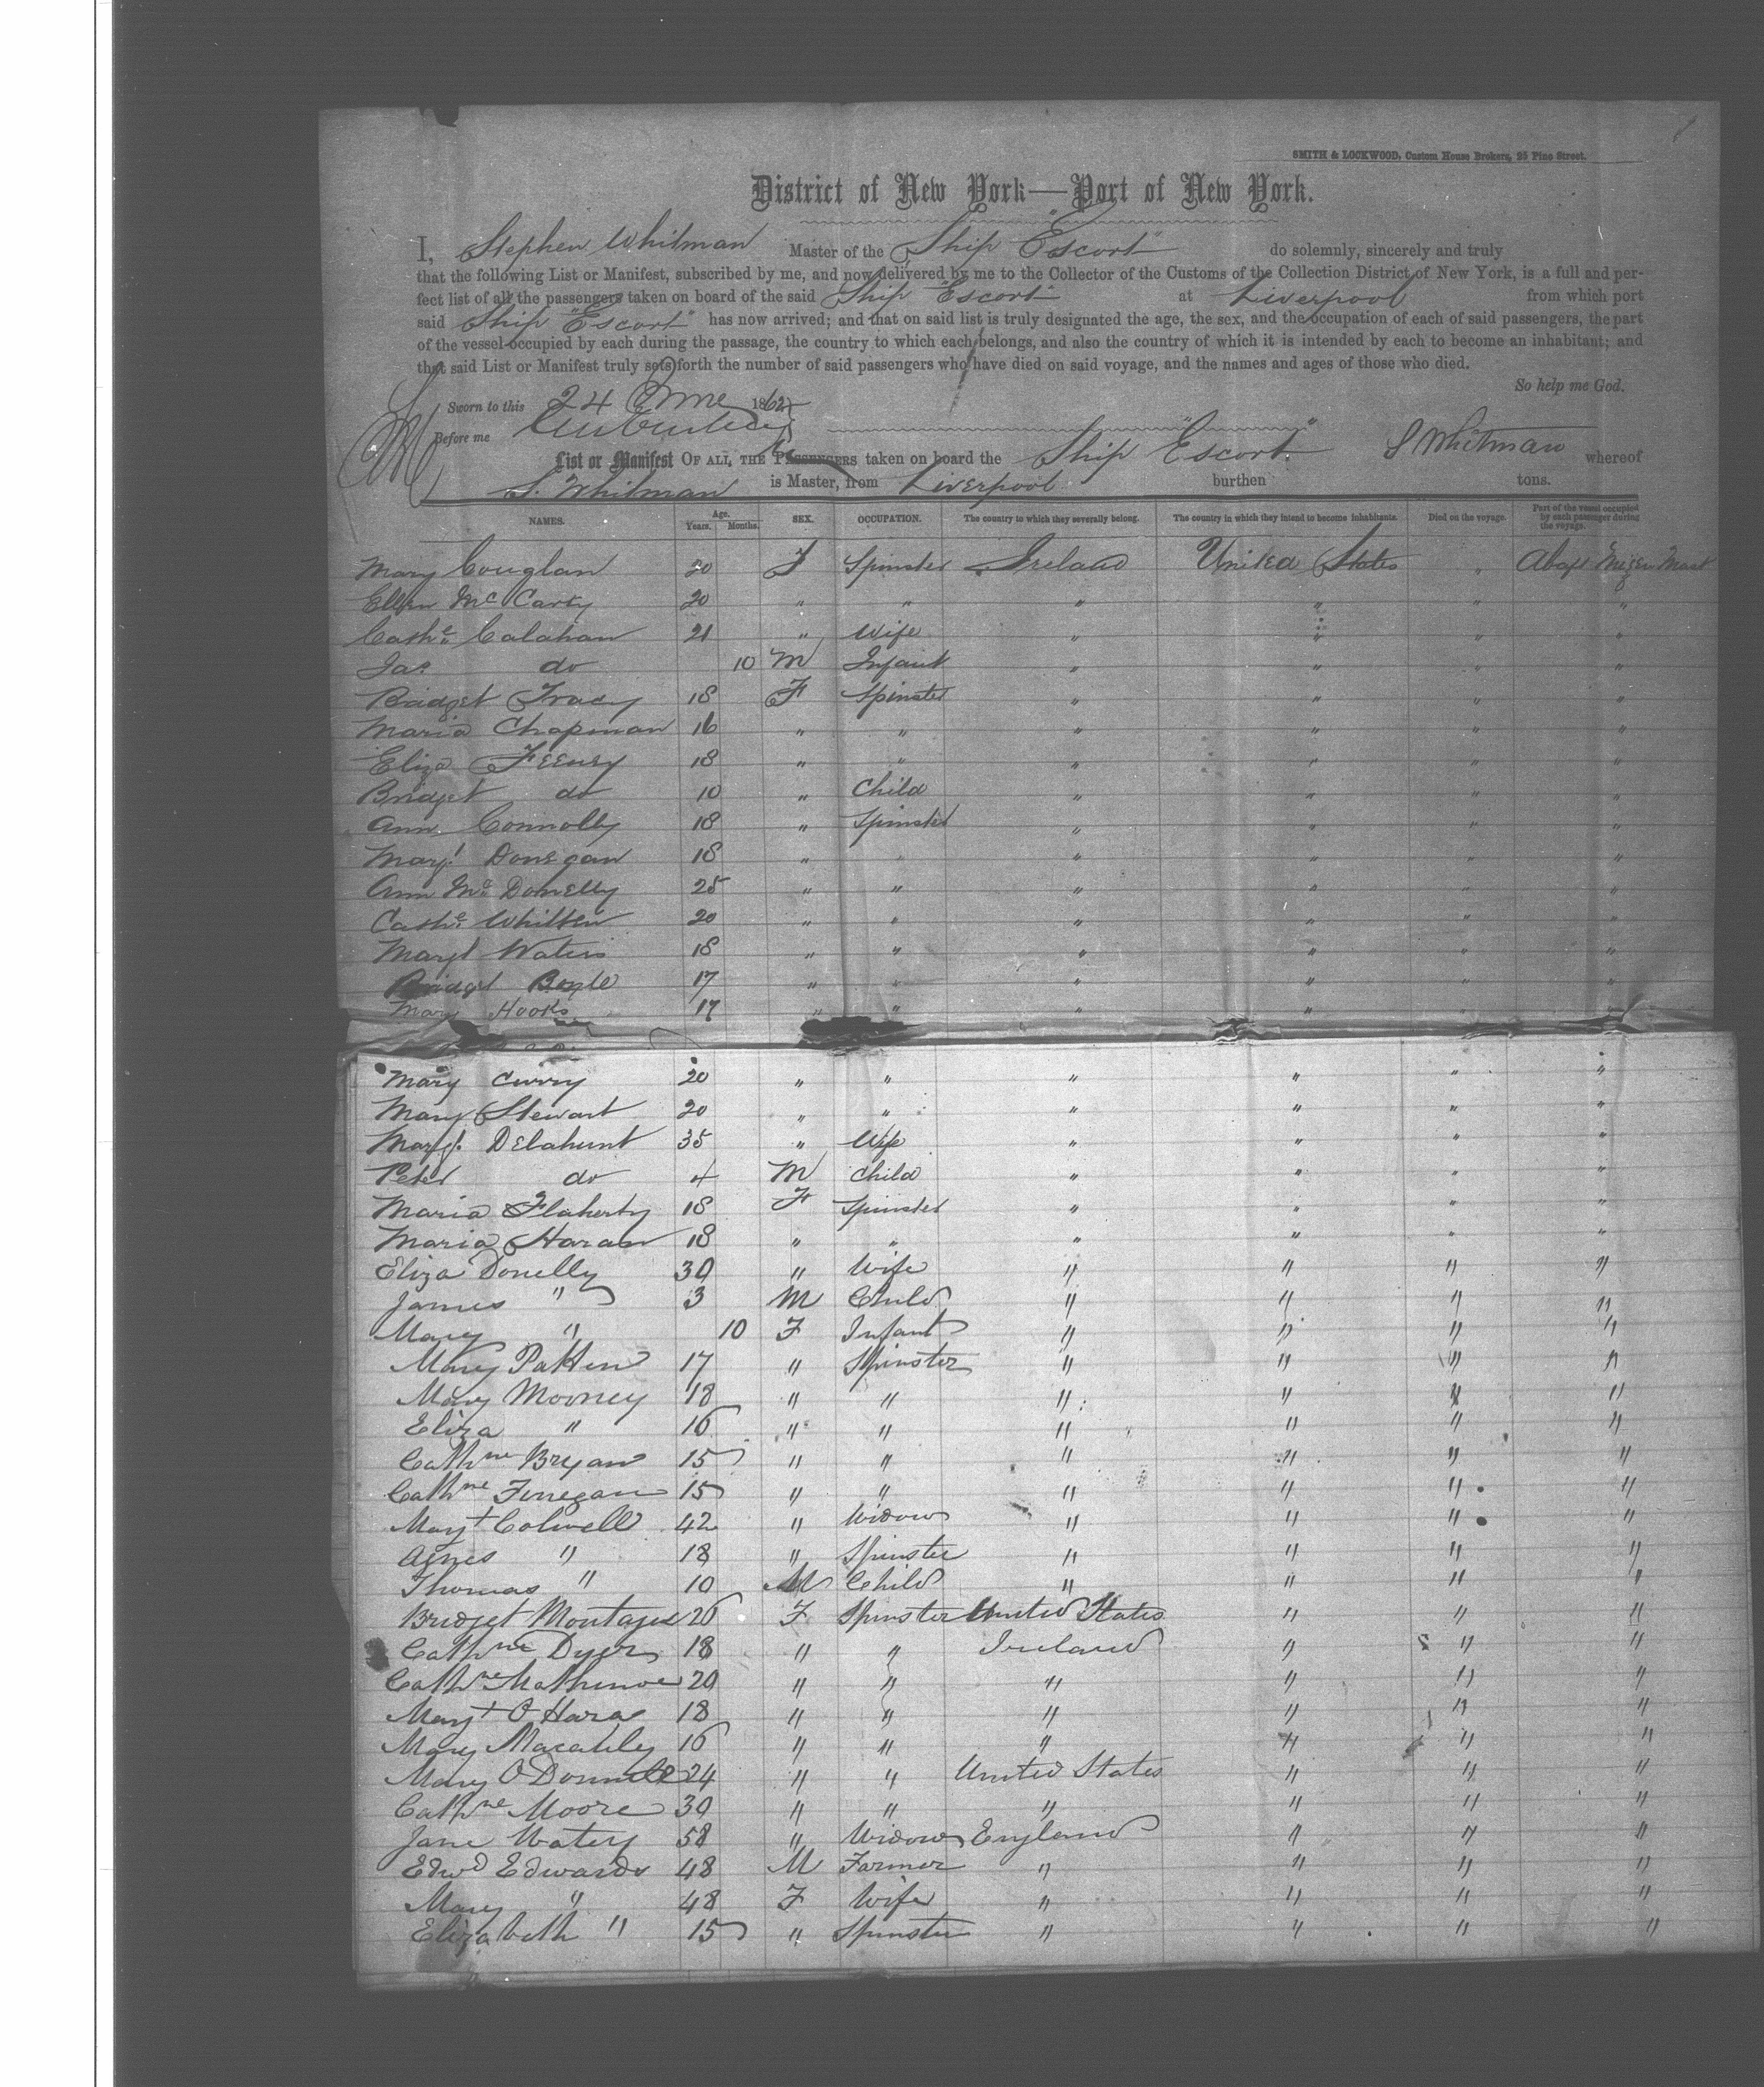 SMITH & LOCKWOOD, Custom House Brokers, 25 Pine Street.
District of New York—Port of New York.
I, Stephen Whitman Master of the Ship "Escort" do solemnly, sincerely and truly
that the following List or Manifest, subscribed by me, and now delivered by me to the Collector of the Customs of the Collection District of New York, is a full and per-
fect list of all the passengers taken on board of the said Ship "Escort" at Liverpool from which port
said Ship "Escort" has now arrived; and that on said list is truly designated the age, the sex, and the occupation of each of said passengers, the part
of the vessel occupied by each during the passage, the country to which each belongs, and also the country of which it is intended by each to become an inhabitant; and
that said List or Manifest truly sets forth the number of said passengers who have died on said voyage, and the names and ages of those who died.
So help me God.
Sworn to this 24 June 1862
Before me
S Whitman
List or Manifest OF ALL THE PASSENGERS taken on board the Ship "Escort" whereof
S. Whitman is Master, from Liverpool burthen tons.
NAMES. Age. Years. Months. SEX. OCCUPATION. The country to which they severally belong. The country in which they intend to become inhabitants. Died on the voyage. Part of the vessel occupied by each passenger during the voyage.
Mary Couglan 20 F Spinster Ireland United States " Abaft Mizen Mast
Ellen McCarty 20 " " " " " "
Cathe Calahan 21 " Wife " " " "
Jas do 10 M Infant " " " "
Bridget Tracy 18 F Spinster " " " "
Maria Chapman 16 " " " " " "
Eliza Feeney 18 " " " " " "
Bridget do 10 " Child " " " "
Ann Connolly 18 " Spinster " " " "
Margt Donegan 18 " " " " " "
Ann Mc Donnelly 25 " " " " " "
Cathe Whitten 20 " " " " " "
Margt Waters 18 " " " " " "
Bridget Boyle 17 " " " " " "
Mary Hooks 17 " " " " " "
Mary Curry 20 " " " " " "
Mary Stewart 20 " " " " " "
Margt. Delahunt 35 " Wife " " " "
Peter do 4 M Child " " " "
Maria Flaherty 18 F Spinster " " " "
Maria Haran 18 " " " " " "
Eliza Donelly 30 " Wife " " " "
James " 3 M Child " " " "
Mary " 10 F Infant " " " "
Mary Patten 17 " Spinster " " " "
Mary Mooney 18 " " " " " "
Eliza " 16 " " " " " "
Cathne Bryan 15 " " " " " "
Cathne Finegan 15 " " " " " "
Margt Colwell 42 " Widow " " " "
Agnes " 18 " Spinster " " " "
Thomas " 10 M Child " " " "
Bridget Montague 26 F Spinster United States " " "
Cathne Dyer 18 " " Ireland " " "
Cathne 20 " " " " " "
Margt O Hara 18 " " " " " "
Mary Macauley 16 " " " " " "
Mary O Donnell 24 " " United States " " "
Cathne Moore 30 " " " " " "
Jane 58 " Widow England " " "
Edwd Edwards 48 M Farmer " " " "
Mary " 48 F Wife " " " "
Elizabeth " 15 " Spinster " " " "